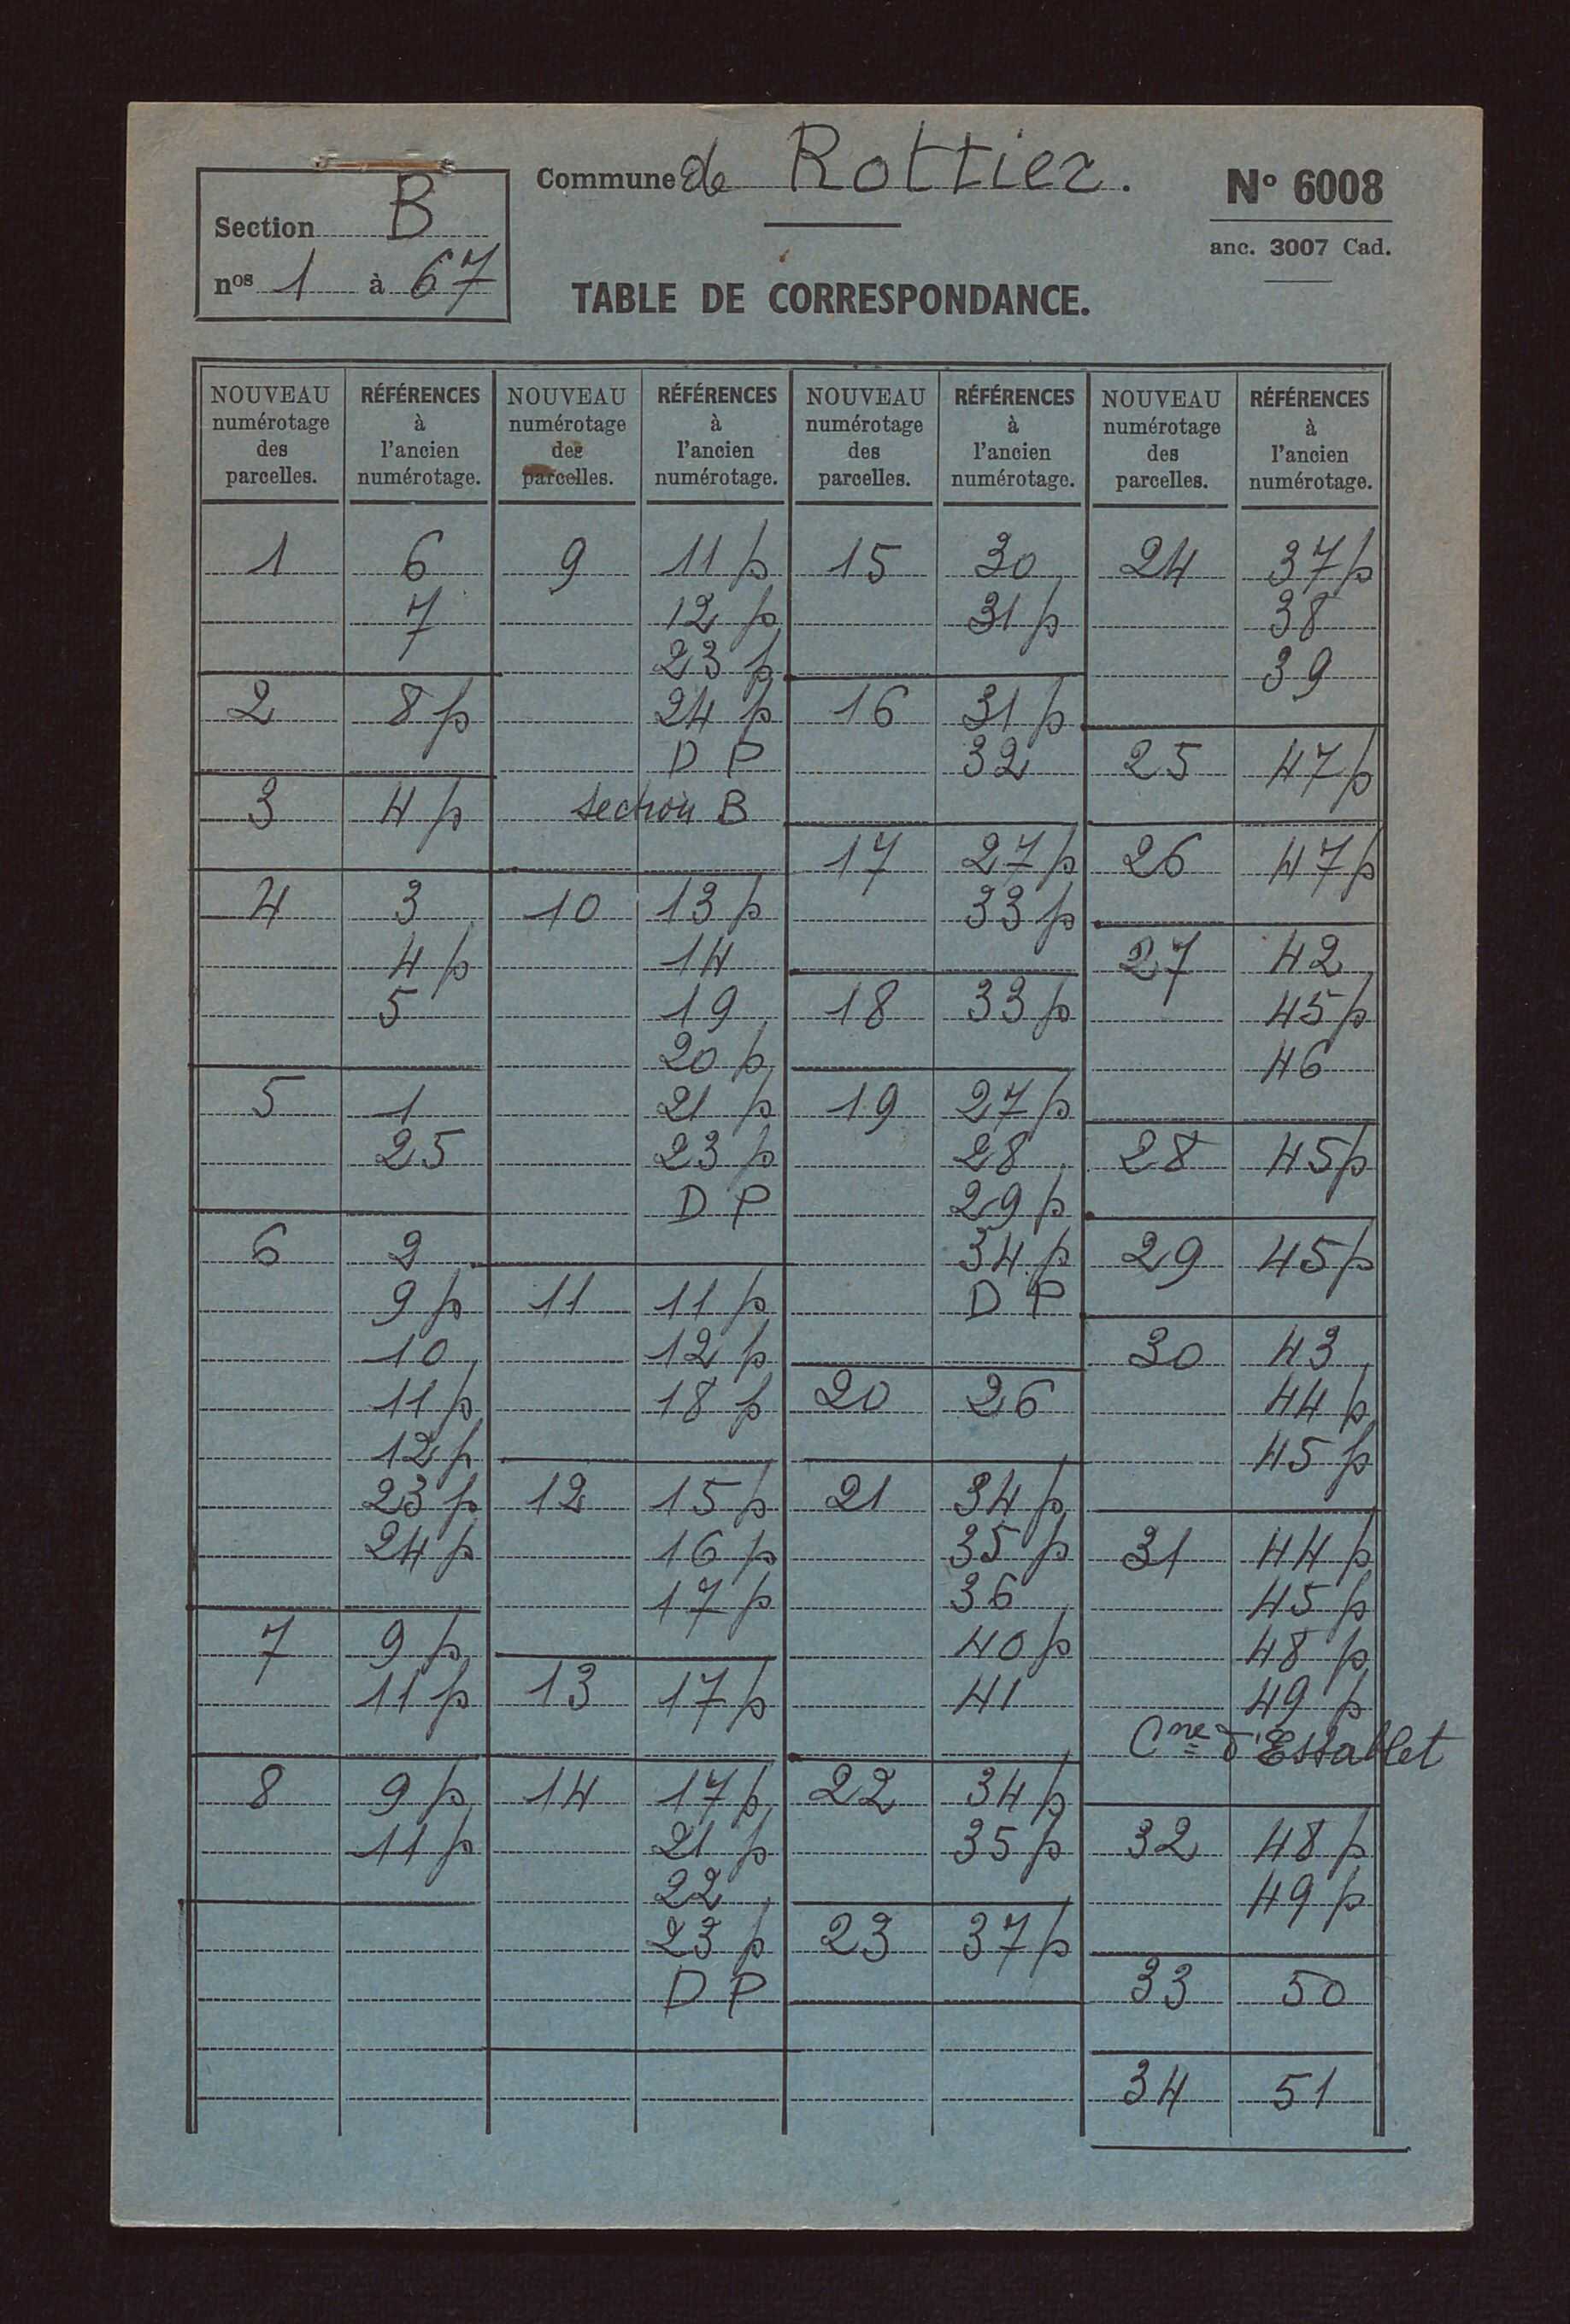 Commune de Rottier.
N° 6008
anc. 3007 Cad.
Section B
nos 1 à 67
TABLE DE CORRESPONDANCE.
NOUVEAU numérotage des parcelles.
RÉFÉRENCES à l'ancien numérotage.
NOUVEAU numérotage des parcelles.
RÉFÉRENCES à l'ancien numérotage.
NOUVEAU numérotage des parcelles.
RÉFÉRENCES à l'ancien numérotage.
NOUVEAU numérotage des parcelles.
RÉFÉRENCES à l'ancien numérotage.
1 6
7
2 8 p
3 4 p
4 3
4 p
5
5 1
25
6 2
9 p
10
11 p
12 p
23 p
24 p
7 9 p
11 p
8 9 p
11 p
9 11 p
12 p
23 p
24 p
D P
section B
10 13 p
14
19
20 p
21 p
23 p
D P
11 11 p
12 p
18 p
12 15 p
16 p
17 p
13 17 p
14 17 p
21 p
22
23 p
D P
15 30
31 p
16 31 p
32
17 27 p
33 p
18 33 p
19 27 p
28
29 p
34 p
D P
20 26
21 34 p
35 p
36
40 p
41
22 34 p
35 p
23 37 p
24 37 p
38
39
25 47 p
26 47 p
27 42
45 p
46
28 45 p
29 45 p
30 43
44 p
45 p
31 44 p
45 p
48 p
49 p
Cne d'Establet
32 48 p
49 p
33 50
34 51